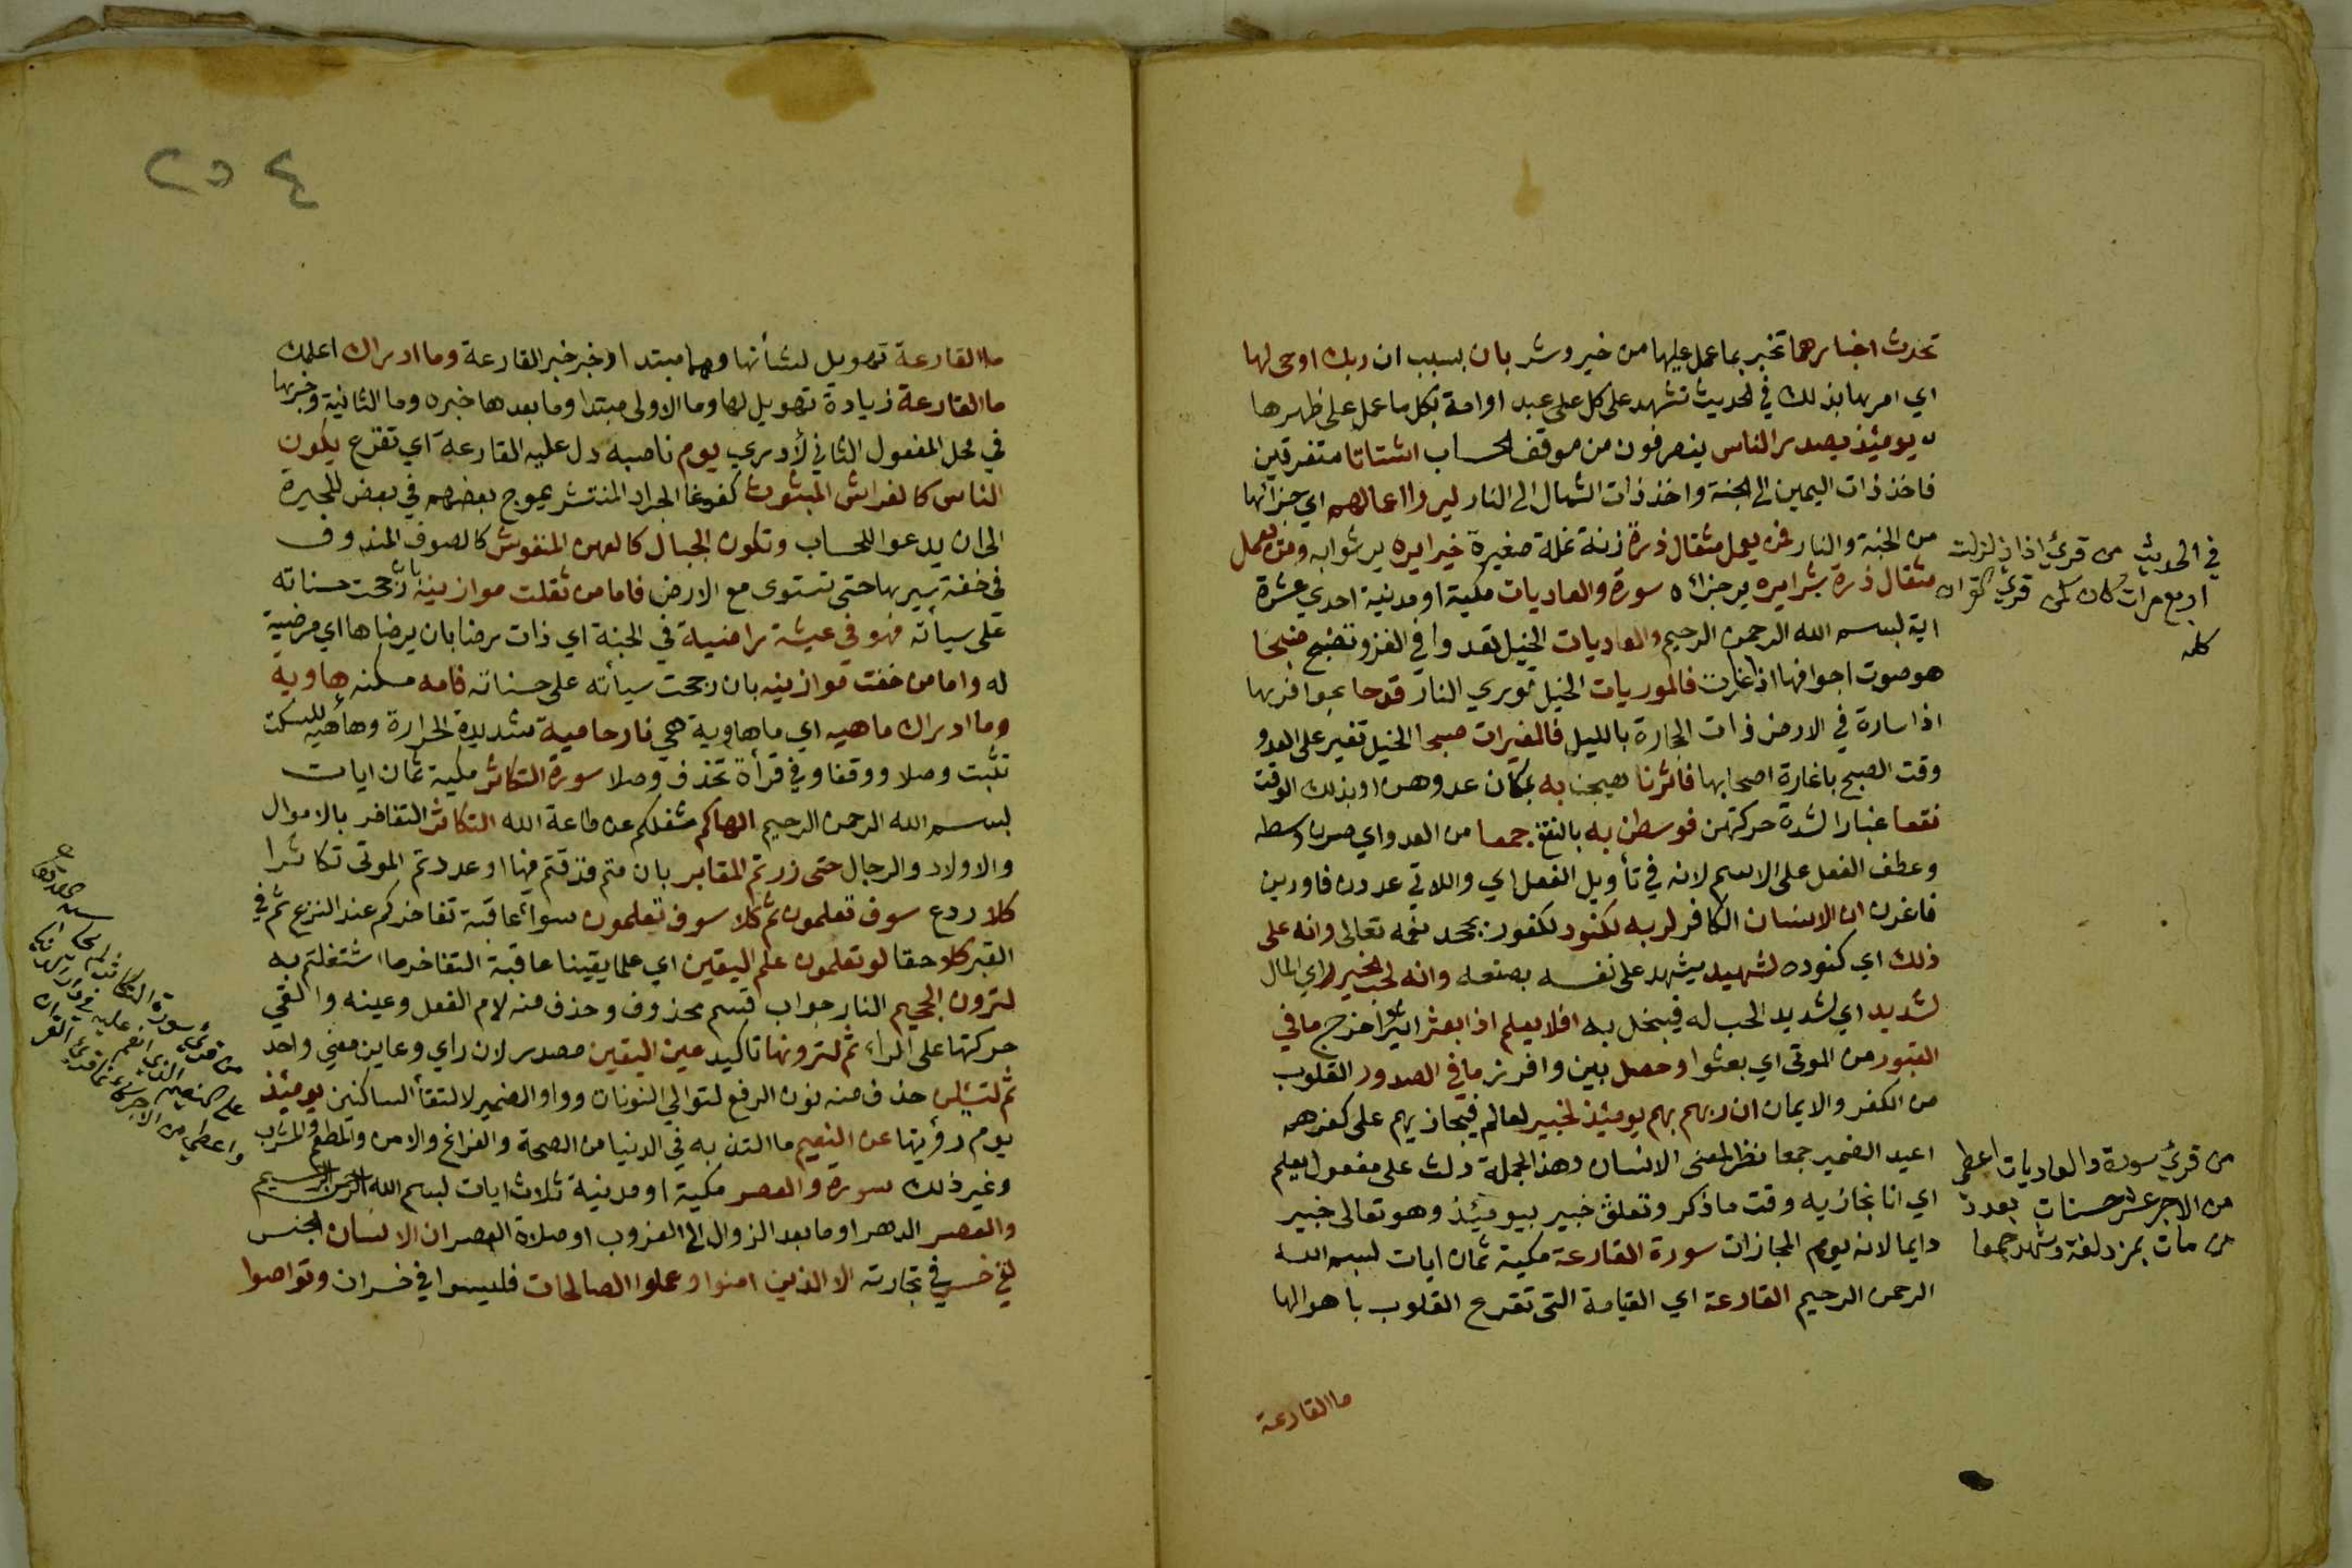 تحدث اخبارها تخبر بما عمل عليها من خير وشر بان بسبب ان ربك اوحى لها
اي امرها بذلك في الحديث تشهد على كل على عبد او امة بكل ما عمل على ظهرها
يومئذ يصدر الناس ينصرفون من موقف الحساب اشتاتا متفرقين
فاخذ ذات اليمين الى الجنة واخذ ذات الشمال الى النار ليروا اعمالهم اي جزائها
من الجنة والنار فمن يعمل مثقال ذرة زنة نملة صغيرة خيرا يره ير ثوابه ومن يعمل
مثقال ذرة شرا يره ير جزائه سورة والعاديات مكية او مدنية احدي عشرة
اية بسم الله الرحمن الرحيم والعاديات الخيل تعدوا في الغزو وتضبح ضبحا
هو صوت اجوافها اذا فالموريات الخيل توري النار قدحا بحوافرها
اذا سارة في الارض ذات الحجارة بالليل فالمغيرات صبحا الخيل تغير على العدو
وقت الصبح باغارة اصحابها فاثرنا هيجن به بمكان عدوهن او بذلك الوقت
نقعا غبارا لشدة حركتهن فوسطن به بالنقع جمعا من العدو اي صرن وسطه
وعطف الفعل على الاسم لانه في تأويل الفعل اي واللاتي عدون فاورين
فاغرن ان الانسان الكافر لربه لكنود لكفور يجحد نعمه تعالى وانه على
ذلك اي كنوده لشهيد يشهد على نفسه بصنعه وانه لحب الخير اي المال
لشديد اي لشديد الحب له فيبخل به افلا يعلم اذا بعثر اثير واخرج ما في
القبور من الموتى اي بعثوا وحصل بين وافرز ما في الصدور القلوب
من الكفر والايمان ان ربهم بهم يومئذ لخبير لعالم فيجازيهم على كفرهم
اعيد الضمير جمعا نظرا لمعنى الانسان وهذه الجملة دلت على مفعول يعلم
اي انا نجازيه وقت ما ذكر وتعلق خبير بيومئذ وهو تعالى خبير
دايما لانه يوم المجازات سورة القارعة مكية ثمان ايات بسم الله
الرحمن الرحيم القارعة اي القيامة التي تقرع القلوب باهوالها
ما القارعة
في الحديث من قرئ اذا زلزلت
اربع مرات كان كمن قرئ القران
كله
من قرئ سورة والعاديات اعطى
من الاجر عشر حسنات بعدد
من مات بمزدلفة وشهد جمعا
٢٥٤
ما القارعة تهويل لشأنها وهما مبتدا وخبر خبر القارعة وما ادراك اعلمك
ما القارعة زيادة تهويل لها وما الاولى مبتدا وما بعدها خبره وما الثانية وخبرها
في محل المفعول الثاني لأدري يوم ناصبه دل عليه القارعة اي تقرع يكون
الناس كالفراش المبثوث كغوغا الجراد المنتشر يموج بعضهم في بعض للحيرة
الى ان يدعوا للحساب وتكون الجبال كالعهن المنفوش كالصوف المندوف
في خفة سيرها حتى تستوى مع الارض فاما من ثقلت موازينه بان رجحت حسناته
على سيأته فهو في عيشة راضية في الجنة اي ذات رضا بان يرضاها اي مرضية
له واما من خفت موازينه بان رجحت سيأته على حسناته فامه مسكنه هاوية
وما ادراك ماهيه اي ما هاوية هي نار حامية شديدة الحرارة وهاهيه للسكت
تثبت وصلا ووقفا وفي قرأة تحذف وصلا سورة التكاثر مكية ثمان ايات
بسم الله الرحمن الرحيم الهاكم شغلكم عن طاعة الله التكاثر التفاخر بالاموال
والاولاد والرجال حتى زرتم المقابر بان متم فدفنتم فيها او عددتم الموتى تكاثرا
كلا ردع سوف تعلمون ثم كلا سوف تعلمون سواء عاقبة تفاخركم عند النزع ثم في
القبر كلا حقا لو تعلمون علم اليقين اي علما يقينا عاقبة التفاخر ما اشتغلتم به
لترون الجحيم النار جواب قسم محذوف وحذف منه لام الفعل وعينه والقي
حركتها على الراء ثم لترونها تاكيد عين اليقين مصدر لان راي وعاين معنى واحد
ثم لتسئلن حذف منه نون الرفع لتوالي النونات وواو الضمير لالتقأ الساكنين يومئذ
يوم رؤيتها عن النعيم ما التذ به في الدنيا من الصحة والفراغ والامن والمطعم والمشرب
وغير ذلك سورة والعصر مكية او مدنية ثلاث ايات بسم الله الرحمن الرحيم
والعصر الدهر او ما بعد الزوال الى الغروب او صلاة العصر ان الانسان الجنس
لفي خسر في تجارته الا الذين امنوا وعملوا الصالحات فليسوا في خسران وتواصوا
من قرئ سورة التكاثر لم يحاسبه الله
على النعيم الذي انعم عليه في دار الدنيا
واعطي من الاجر كانما قرئ الف